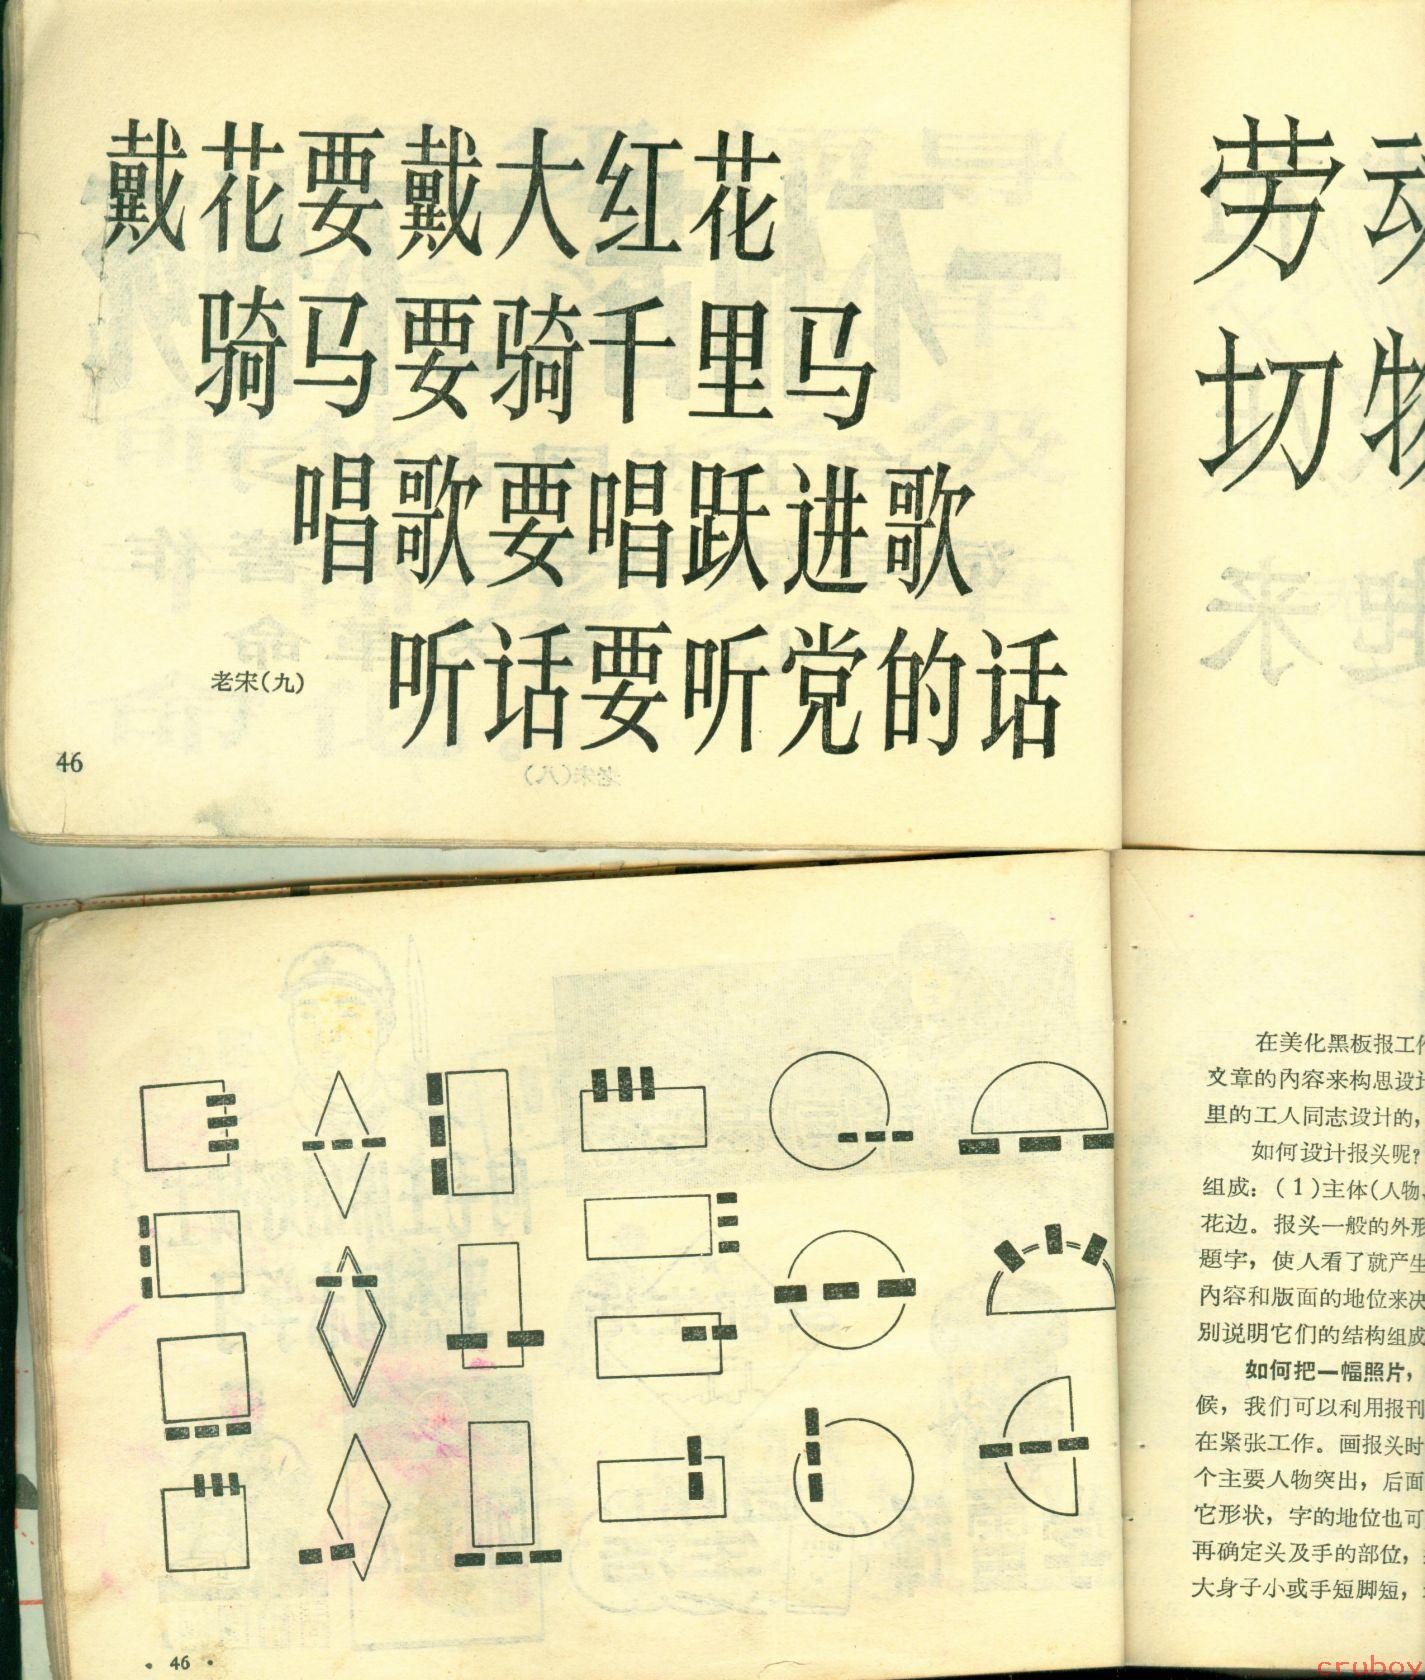 戴花要戴大红花
骑马要骑千里马
唱歌要唱跃进歌
听话要听党的话
老宋(九)
46
劳动
切物
在美化黑板报工作
文章的内容来构思设计
里的工人同志设计的，
如何设计报头呢？
组成：(1)主体(人物、
花边。报头一般的外形
题字，使人看了就产生
内容和版面的地位来决
别说明它们的结构组成
如何把一幅照片，
候，我们可以利用报刊
在紧张工作。画报头时
个主要人物突出，后面
它形状，字的地位也可
再确定头及手的部位，
大身子小或手短脚短，
• 46 •
cruboy